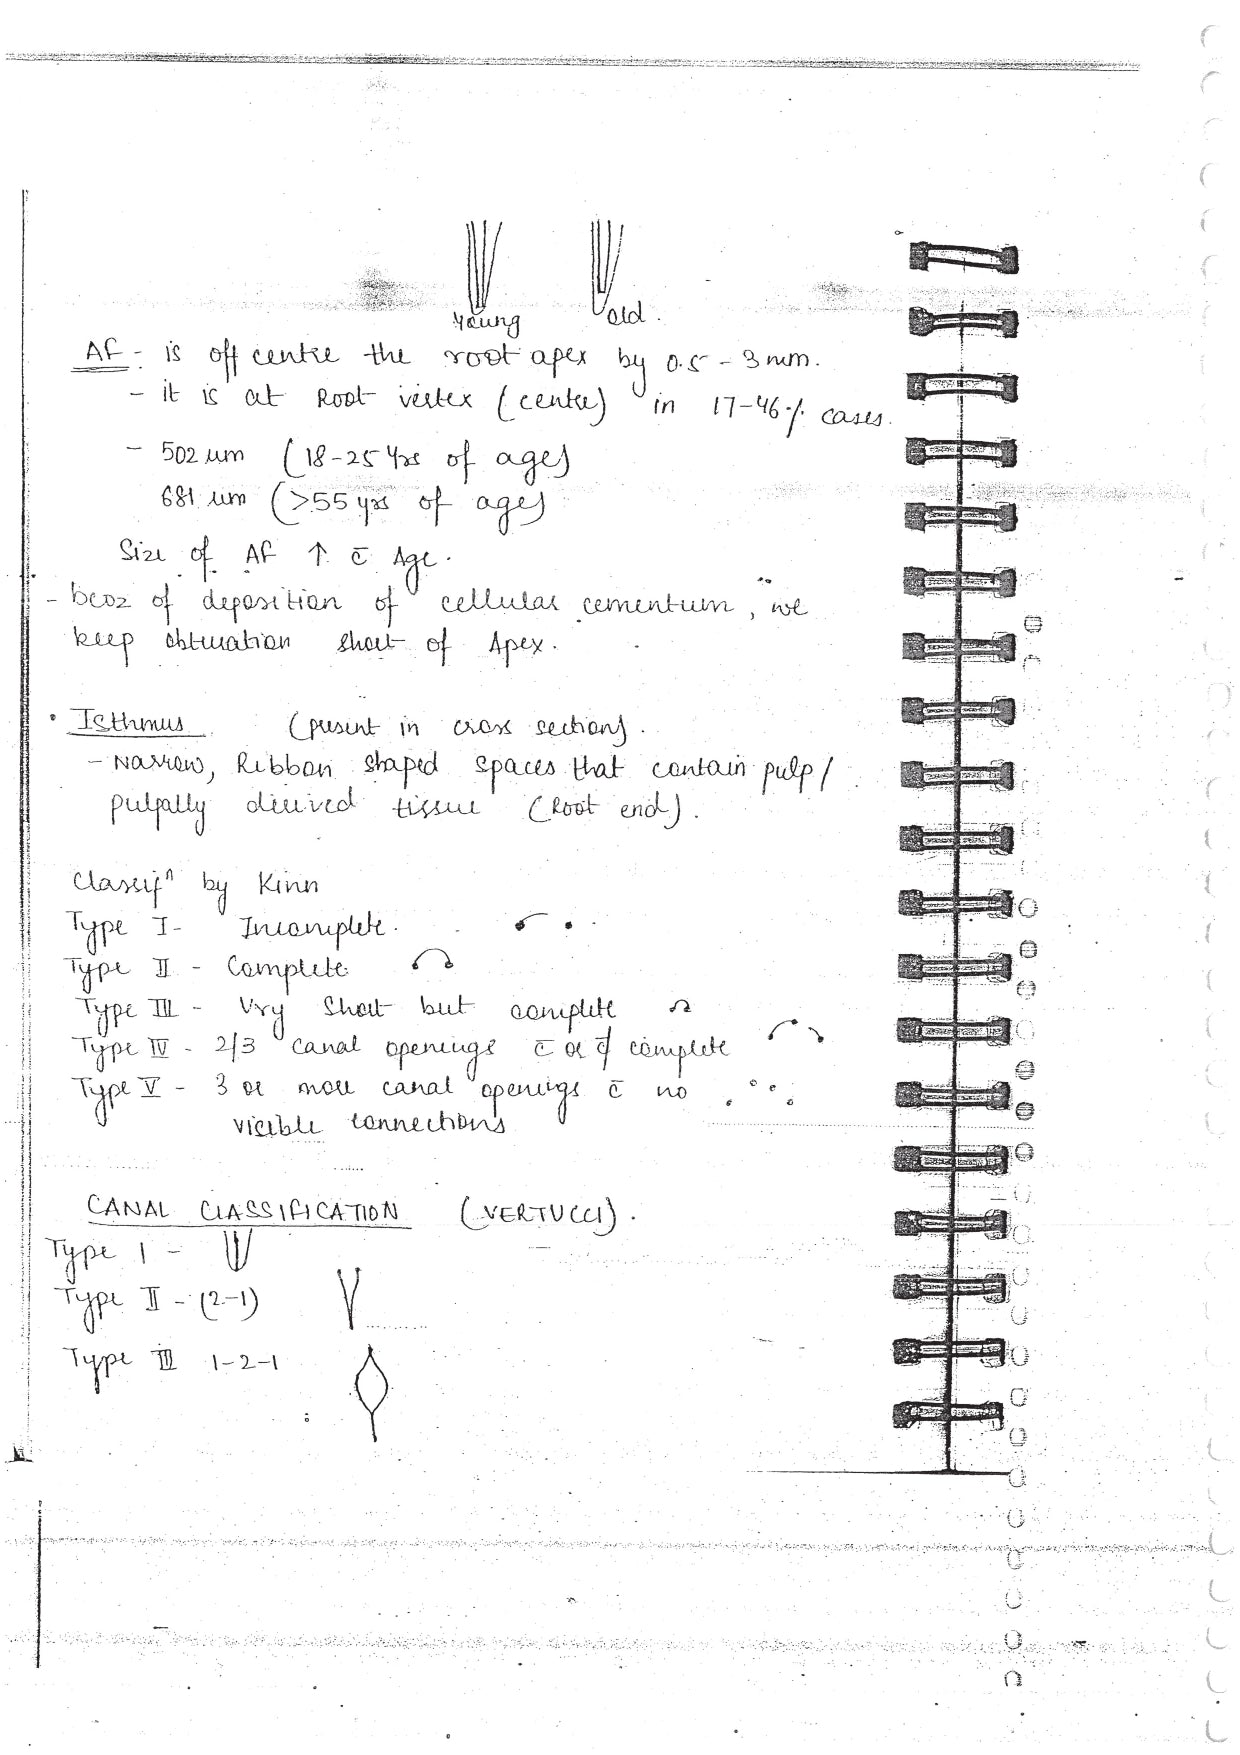 Young old.
AF - is off centre the root apex by 0.5 - 3 mm.
- it is at Root vertex (centre) in 17-46% cases.
- 502 um (18-25 Yrs of age)
681 um (>55 yrs of age)
Size of AF ↑ c̄ Age.
- bcoz of deposition of cellular cementum, we
keep obturation short of Apex.
• Isthmus (present in cross section).
- Narrow, Ribbon shaped spaces that contain pulp/
pulpally derived tissue (Root end).
Classifⁿ by Kinn
Type I - Incomplete.
Type II - Complete
Type III - Vry short but complete
Type IV - 2/3 canal openings c̄ or complete
Type V - 3 or more canal openings c̄ no
visible connections
CANAL CLASSIFICATION (VERTUCCI).
Type I -
Type II - (2-1)
Type III 1-2-1